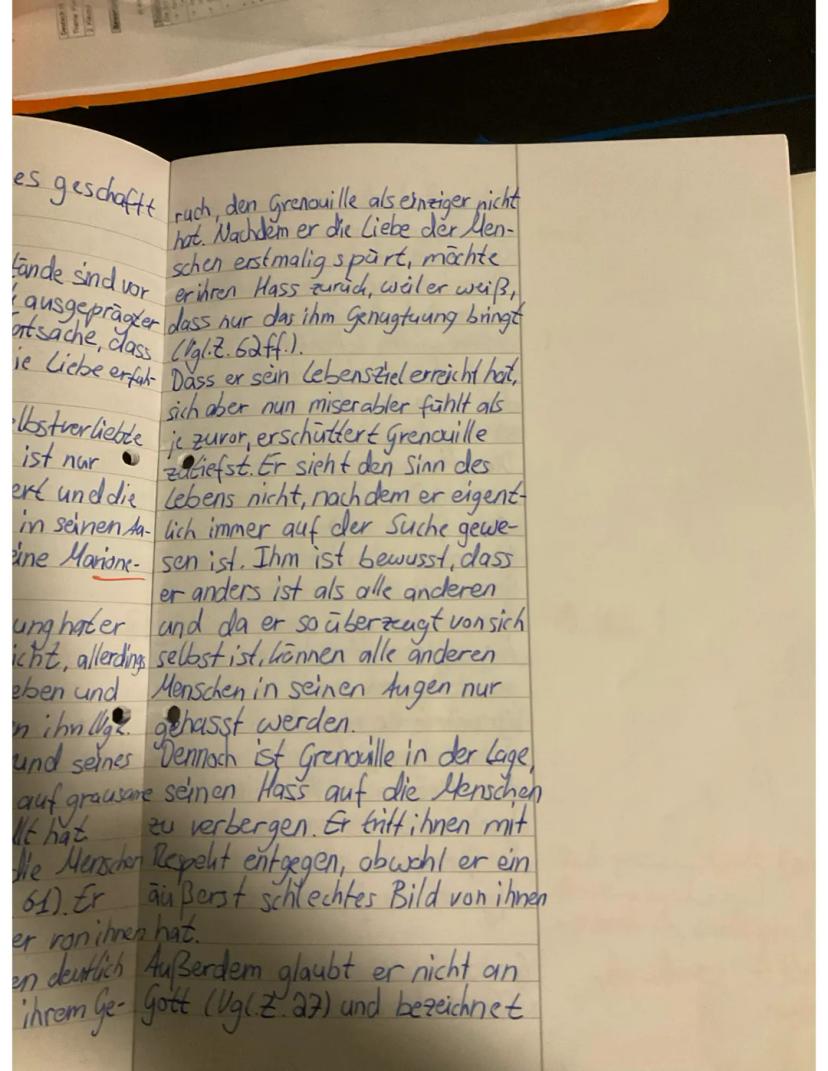 es geschafft
tände sind vor
ausgeprägter
atsache, dass
ie Liebe erfah-
lbstverliebte
ist nur
ert und die
in seinen Au-
eine Marione-
ung hat er
icht, allerdings
eben und
n ihn (Vgl.
und seines
auf grausame
llt hat
die Menschen
61). Er
er von ihnen
en deutlich
ihrem Ge-
ruch, den Grenouille als einziger nicht
hat. Nachdem er die Liebe der Men-
schen erstmalig spürt, möchte
er ihren Hass zurück, weil er weiß,
dass nur das ihm Genugtuung bringt
(Vgl. Z. 62ff.).
Dass er sein Lebensziel erreicht hat,
sich aber nun miserabler fühlt als
je zuvor, erschüttert Grenouille
zutiefst. Er sieht den Sinn des
Lebens nicht, nachdem er eigent-
lich immer auf der Suche gewe-
sen ist. Ihm ist bewusst, dass
er anders ist als alle anderen
und da er so überzeugt von sich
selbst ist, können alle anderen
Menschen in seinen Augen nur
gehasst werden.
Dennoch ist Grenouille in der Lage,
seinen Hass auf die Menschen
zu verbergen. Er tritt ihnen mit
Respekt entgegen, obwohl er ein
äußerst schlechtes Bild von ihnen
hat.
Außerdem glaubt er nicht an
Gott (Vgl. Z. 27) und bezeichnet